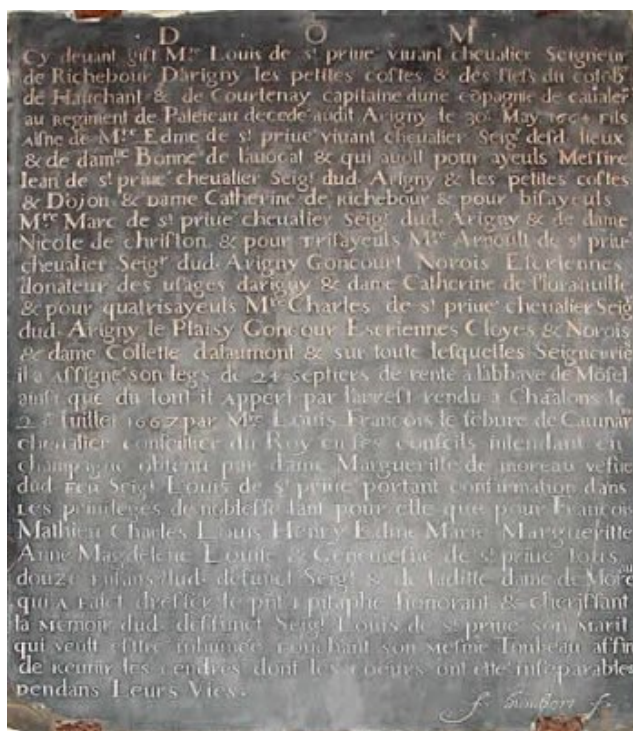 D O M
Cy deuant gist M.re Louis de st priué viuant cheualier Seigneur
de Richebour Darigny les petites costes & des fiefs du
de Hauchant & de Courtenay capitaine dune cōpagnie de caualer
au Regiment de Paleicau decede audit Arigny le 30. May 1654 Fils
Aisne de M.re Edme de st priué viuant cheualier Seigr desd lieux
& de damlle Bonne de lauocat & qui auoit pour ayeuls Messire
Iean de st priué cheualier Seigt dud Arigny & les petites costes
& Dojon & Dame Catherine de Richebour & pour bisayeuls
M.re Marc de st priué cheualier Seigt dud Arigny & de dame
Nicole de christon & pour Trisayeuls M.re Arnoult de st priué
cheualier Seigr dud Arigny Goncourt Norois Escriennes
donateur des usages darigny & dame Catherine de
& pour quatrisayeuls M.re Charles de st priué cheualier Seig
dud Arigny le Plaisy Goncour Escriennes Cloyes & Norois
& dame Collette dalaumont & sur toute lesquelles Seigneurie
il a Assigné son legs de 24 septiers de rente a labbaye de
ainsi que du tout il Appert par larrest rendu a Chaalons le
Iuillet 1667 par M.re Louis François le febure de Caumar
cheualier conseillier du Roy en ses conseils intendant en
champagne obtenu par dame Margueritte de moreau vefue
dud Feu Seigt Louis de st priué portant confirmation dans
Les priuileges de noblesse tant pour elle que pour François
Mathieu Charles Louis Henry Edme Marie Margueritte
Anne Magdelene Louise & Geneuiefue de st priué tous
douze Enfans dud defunct Seigt & de laditte dame de More
qui A Faict dresser le pnt Epitaphe honorant & cherissant
la Memoir dud deffunct Seigt Louis de st priué son Marit
qui veult estre inhumée touchant son Mesme Tombeau affin
de Reunir les cendres dont les coeurs ont esté inseparables
pendans Leurs Vies.